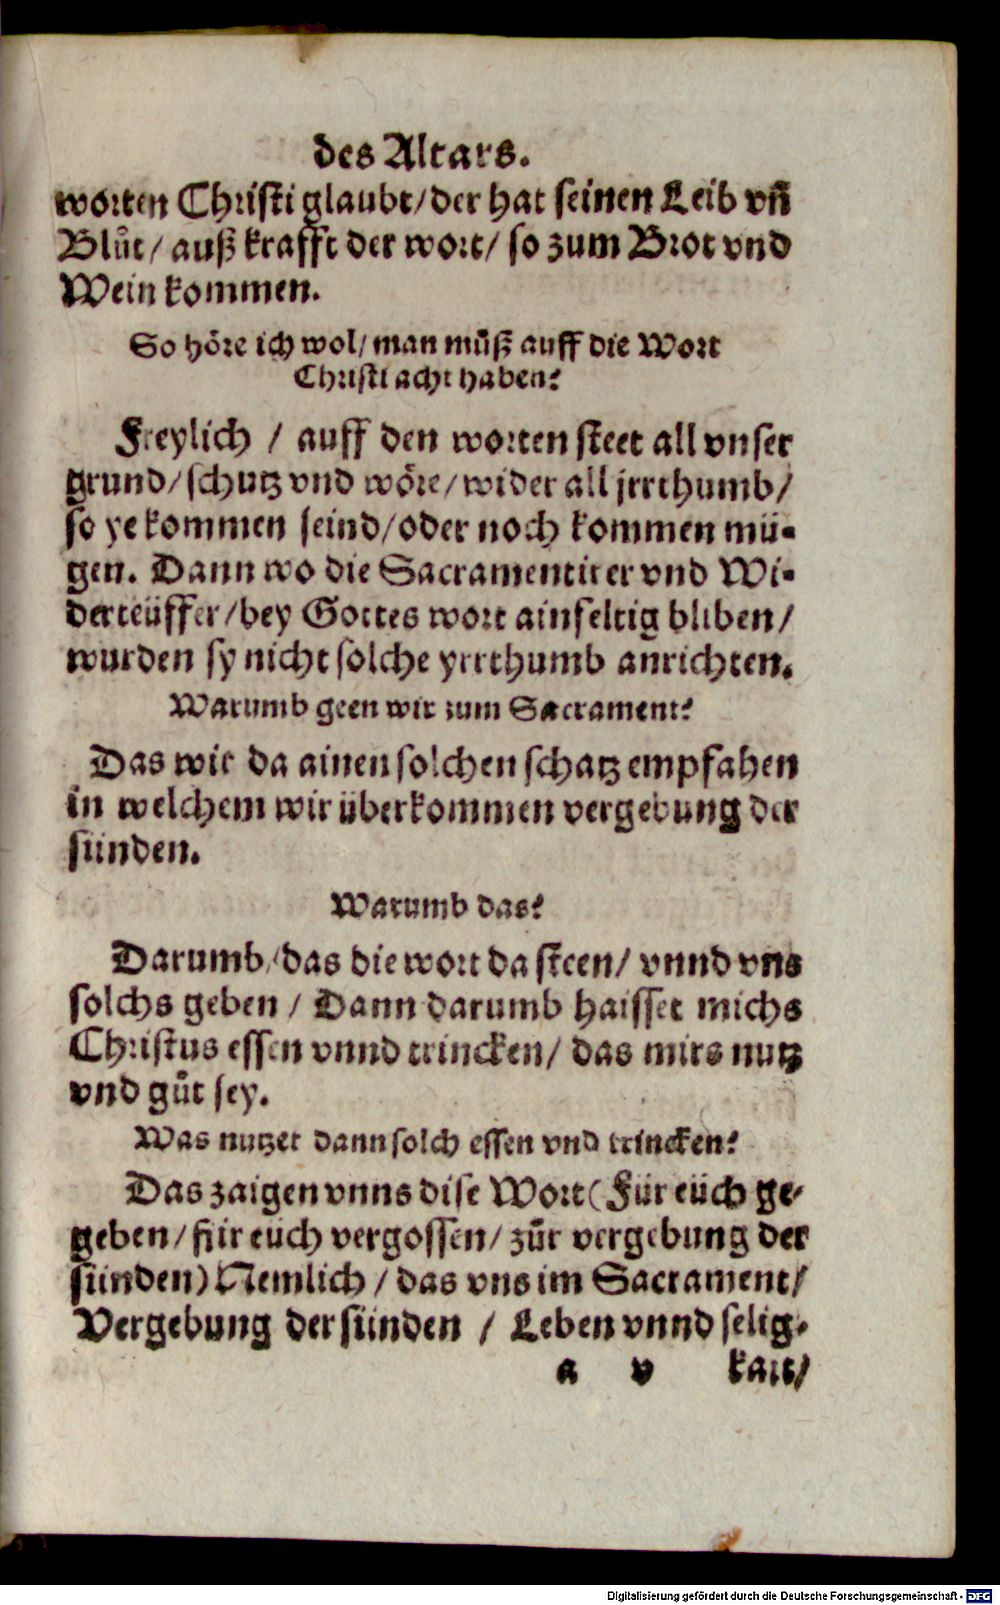 des Altars.
worten Christi glaubt/der hat seinen Leib vñ
Blůt/ auß krafft der wort/ so zum Brot vnd
Wein kommen.
So höre ich wol/ man můß auff die Wort
Christi acht haben?
Freylich / auff den worten steet all vnser
grund/schutz vnd wöre/wider all jrrthumb/
so ye kommen seind/oder noch kommen mü-
gen. Dann wo die Sacramentirer vnd Wi-
derteüffer/bey Gottes wort ainfeltig bliben/
wurden sy nicht solche yrrthumb anrichten.
Warumb geen wir zum Sacrament?
Das wir da ainen solchen schatz empfahen
in welchem wir überkommen vergebung der
sünden.
Warumb das?
Darumb/das die wort da steen/ vnnd vns
solchs geben / Dann darumb haisset michs
Christus essen vnnd trincken/ das mirs nutz
vnd gůt sey.
Was nutzet dann solch essen vnd trincken?
Das zaigen vnns dise Wort(Für eüch ge-
geben/für euch vergossen/ zůr vergebung der
sünden) Nemlich / das vns im Sacrament/
Vergebung der sünden / Leben vnnd selig-
a v kait/
Digitalisierung gefördert durch die Deutsche Forschungsgemeinschaft - DFG